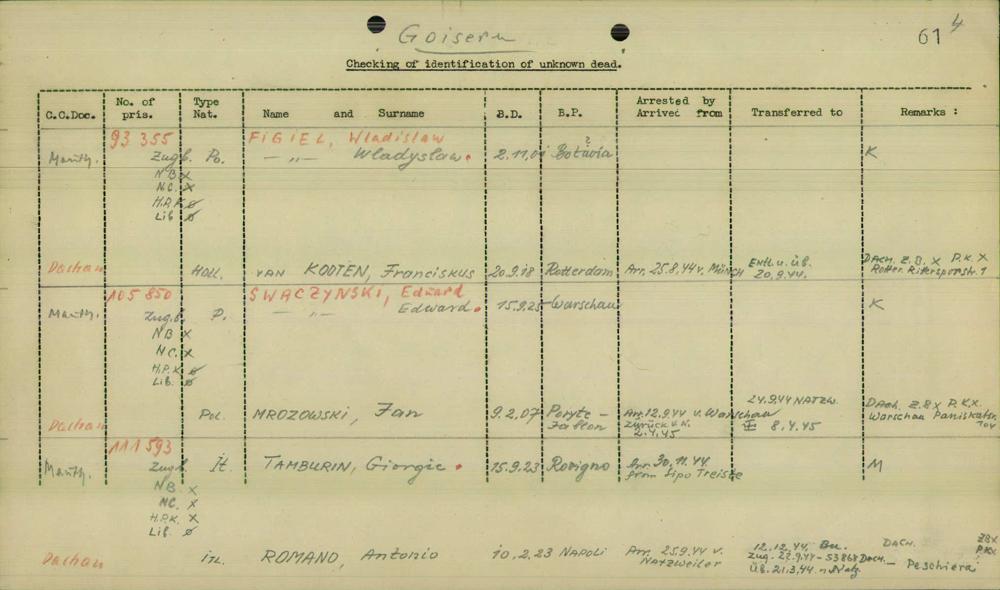 Goisern
61 4
Checking of identification of unknown dead.
C.C.Doc. No. of pris. Type Nat. Name and Surname B.D. B.P. Arrested by Arrived from Transferred to Remarks :
93 355 FIGIEL, Wladislaw
Mauth. Zugb. Po. — „ — Wladyslaw. 2.11.01 Botùvia ? K
N B x
N.C. x
H.P.K ø
Lib ø
Dachau Holl. VAN KOOTEN, Franciskus 20.9.18 Rotterdam Arr. 25.8.44 v. Münch Entl. u. üb. 20.9.44. DACH. Z.B. X P.K.X
Rotter. Ritterspoorstr. 1
105 850 SWACZYNSKI, Edward
Mauth. Zugb. P. — „ — Edward. 15.9.25 Warschau K
NB x
NC. x
H.P.K ø
Lib. ø
Dachau Pol. MROZOWSKI, Jan 9.2.07 Poryte – Jablon Arr. 12.9.44 v. Warschau zurück v. N. 2.4.45 24.9.44 NATZW. 8.4.45 Dach. Z.B X P.K.X.
Warschau
111 593
Mauth. Zugb. It. TAMBURIN, Giorgio. 15.9.23 Rovigno Arr. 30.11.44. from Sipo Treiste M
N B x
NC. x
H.P.K. x
Lib. ø
Dachau Itl. ROMANO, Antonio 10.2.23 NAPOLI Arr. 25.9.44 v. Natzweiler 12.12.44, Bu. DACH. ZBX PKX
Zug. 22.9.44 - 53868 Dach. — Peschiera
Üb. 21.3.44. n. Natz.